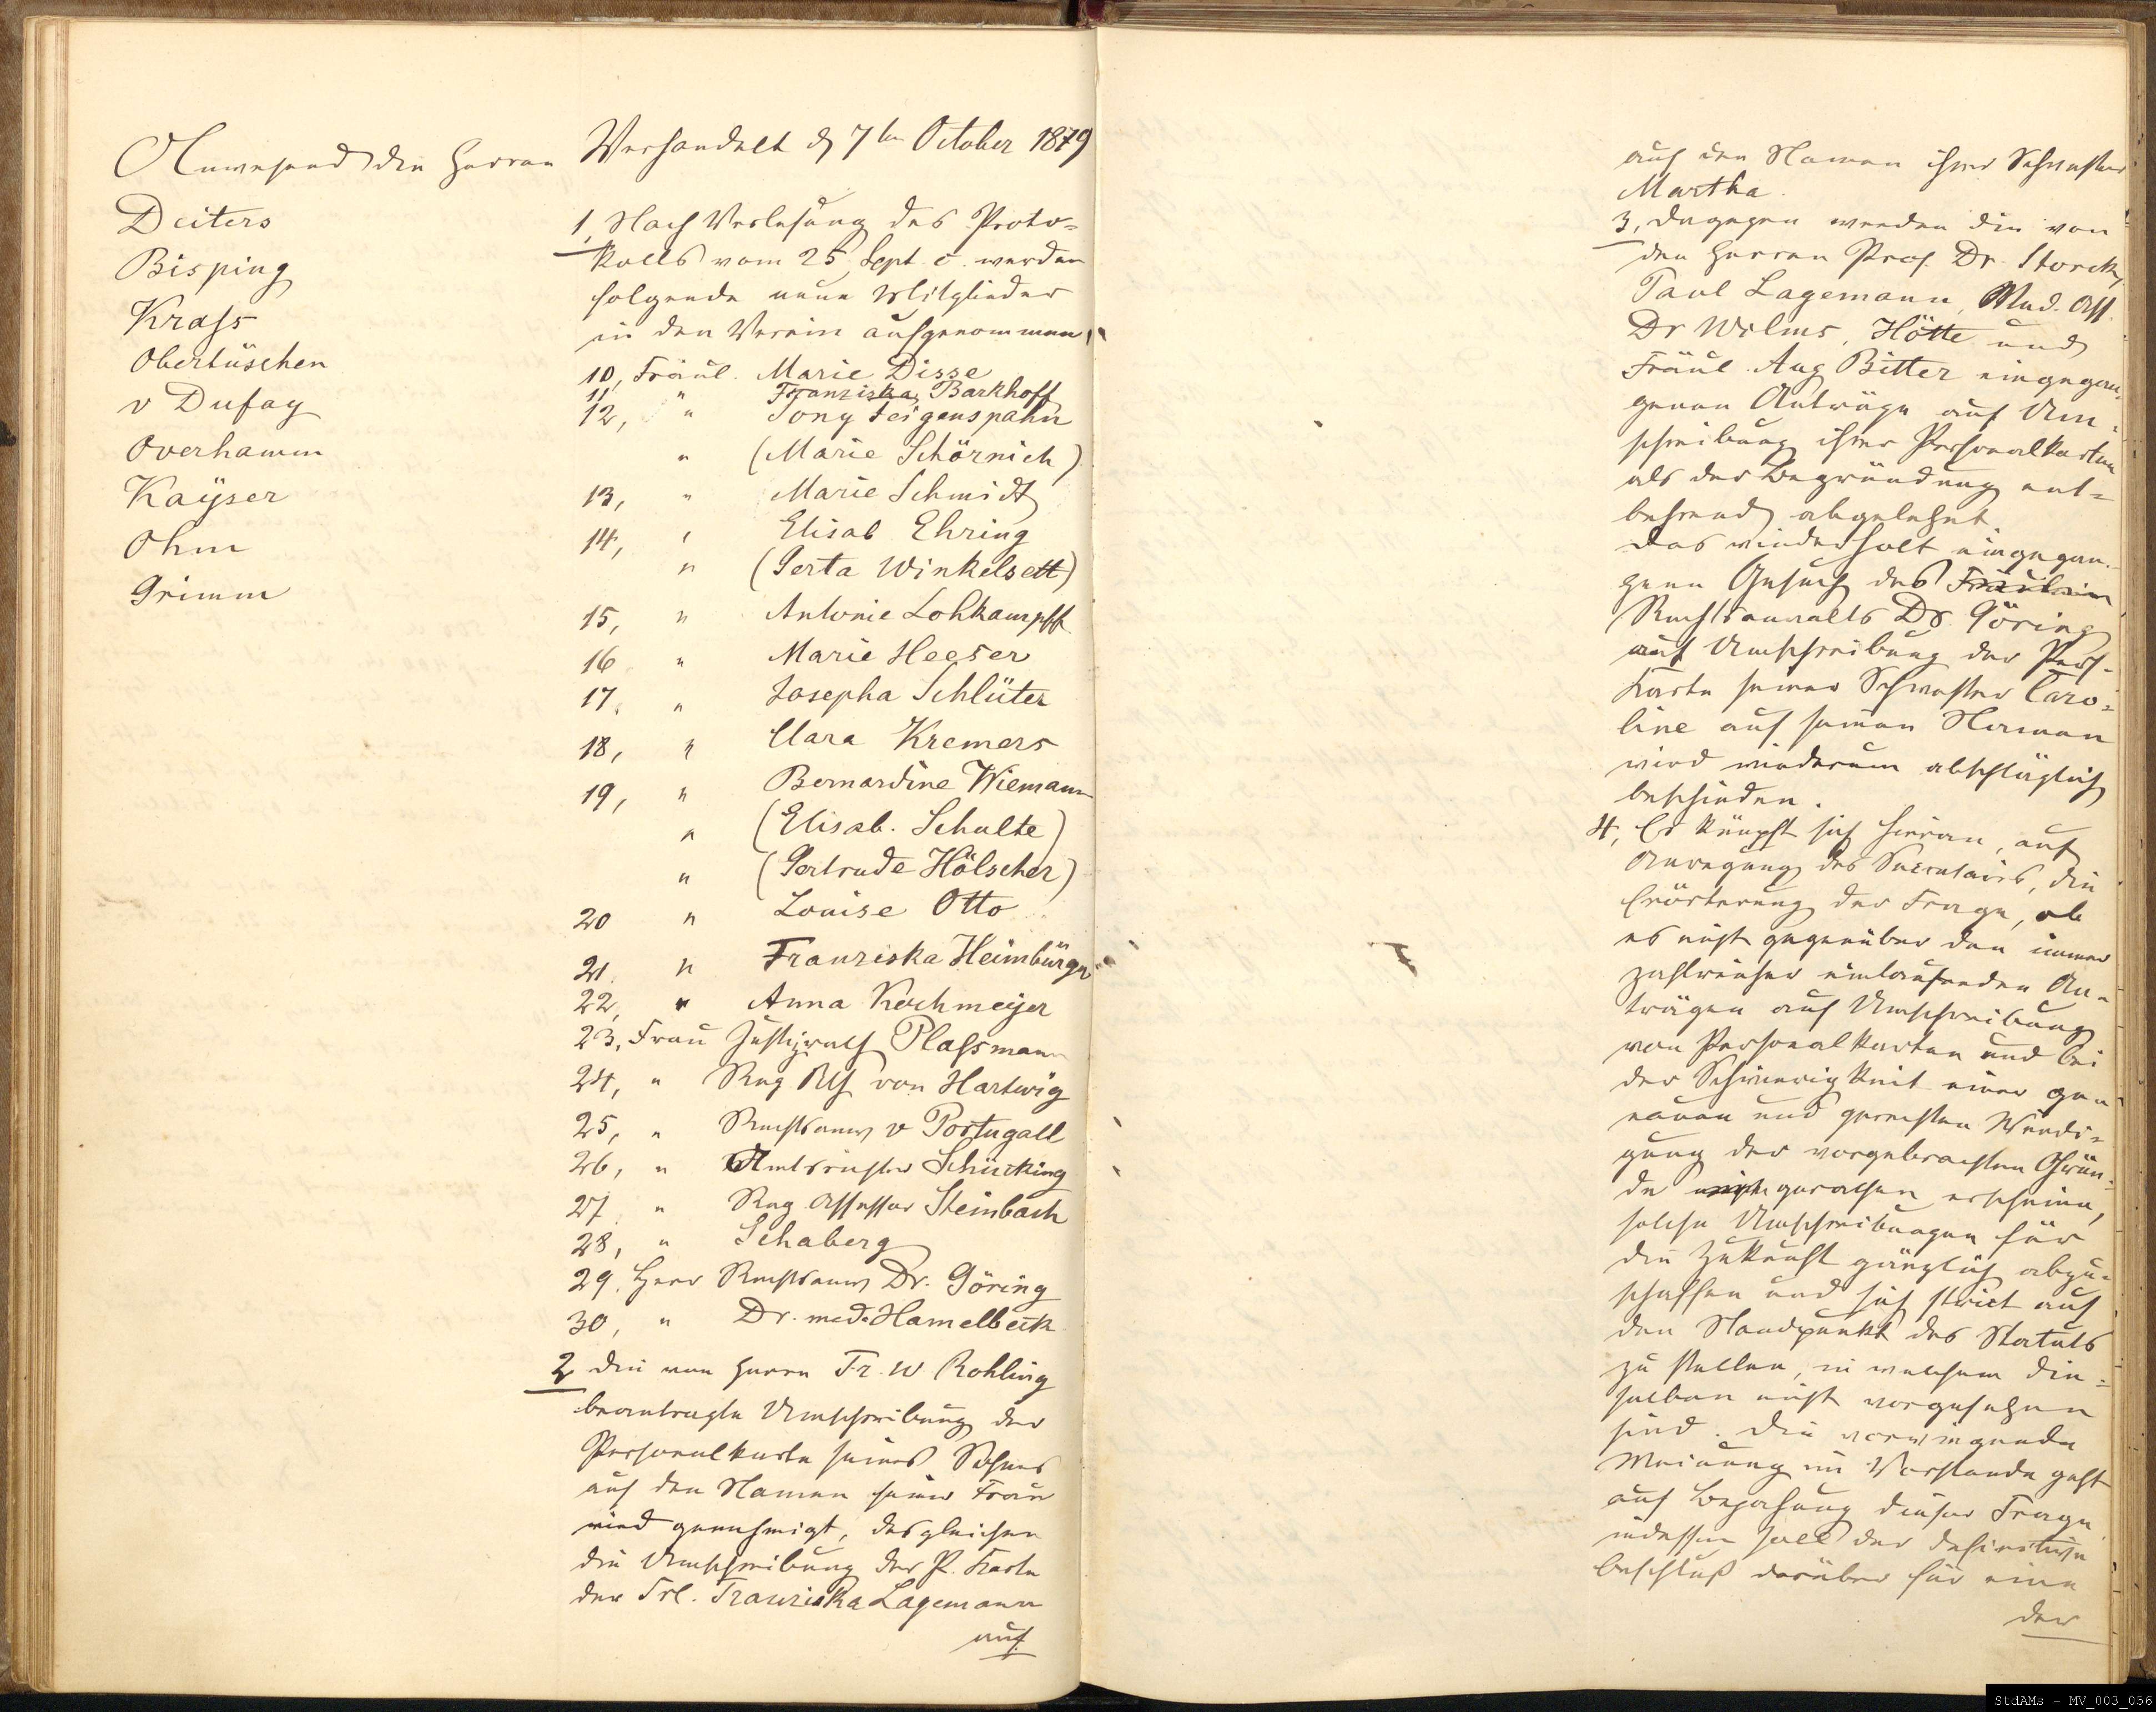 Anwesend die Herren
Deiters
Bisping
Krass
Obertüschen
v Dufay
Overhamm
Kaÿser
Ohm
Grimm
Verhandelt d 7ten October 1879
1, Nach Verlesung des Proto=
kolls vom 25 Sept. c. werden
folgende neue Mitglieder
in den Verein aufgenommen:
10, Fräul. Marie Disse
11 " Franziska Barkhoff
12, " Tony Feigenspahn
" (Marie Schörnich)
13, " Marie Schmidt
14, " Elisab Ehring
" (Gerta Winkelsett)
15, " Antonie Lohkampff
16 " Marie Heeser
17. " Josepha Schlüter
18, " Clara Kremers
19, " Bernardine Wiemann
" (Elisab. Schulte)
" (Gertrude Hölscher)
20 " Louise Otto
21. " Franziska Heimbürger
22, " Anna Kochmeijer
23, Frau Justizrath Plassmann
24, " Reg Rth von Hartwig
25, " Rechtsanw v Portugall
26, " Amtsrichter Schücking
27 " Reg Assessor Steinbach
28, " Schaberg
29. Herr Rechtsanw Dr. Göring
30, " Dr. med. Hamelbeck
2 Die von Herrn Fr. W Rohling
beantragte Umschreibung der
Personalkarte seines Sohnes
auf den Namen seiner Frau
wird genehmigt, desgleichen
die Umschreibung der P. Karte
der Frl. Franziska Lagemann
auf
auf den Namen ihrer Schwester
Martha.
3, Dagegen werden die von
den Herren Prof. Dr. Storck,
Paul Lagemann, Med. Ass.
Dr Wilms, Hötte und
Fräul. Aug Bitter eingegan=
genen Anträge auf Um=
schreibung ihrer Personalkarten
als der Begründung ent=
behrend abgelehnt.
Das wiederholt eingegan=
gene Gesuch des Fräulein
Rechtsanwalts Dr. Göring
auf Umschreibung der Pers.
Karte seiner Schwester Caro=
line auf seinen Namen
wird wiederum abschläglich
beschieden.
4, Es knüpft sich hieran, auf
Anregung des Secretairs, die
Erörterung der Frage, ob
es nicht gegenüber den immer
zahlreicher einlaufenden An=
trägen auf Umschreibung
von Personalkarten und bei
der Schwierigkeit einer ge=
nauen und gerechten Würdi=
gung der vorgebrachten Grün=
de gerathen erscheine,
solche Umschreibungen für
die Zukunft gänzlich abzu=
schaffen und sich strict auf
den Standpunkt des Statuts
zu stellen, in welchem die=
selben nicht vorgesehen
sind. Die vorwiegende
Meinung im Vorstande geht
auf Bejahung dieser Frage,
indessen soll der definitive
Beschluß darüber für eine
der
StdAMs - MV_003_056